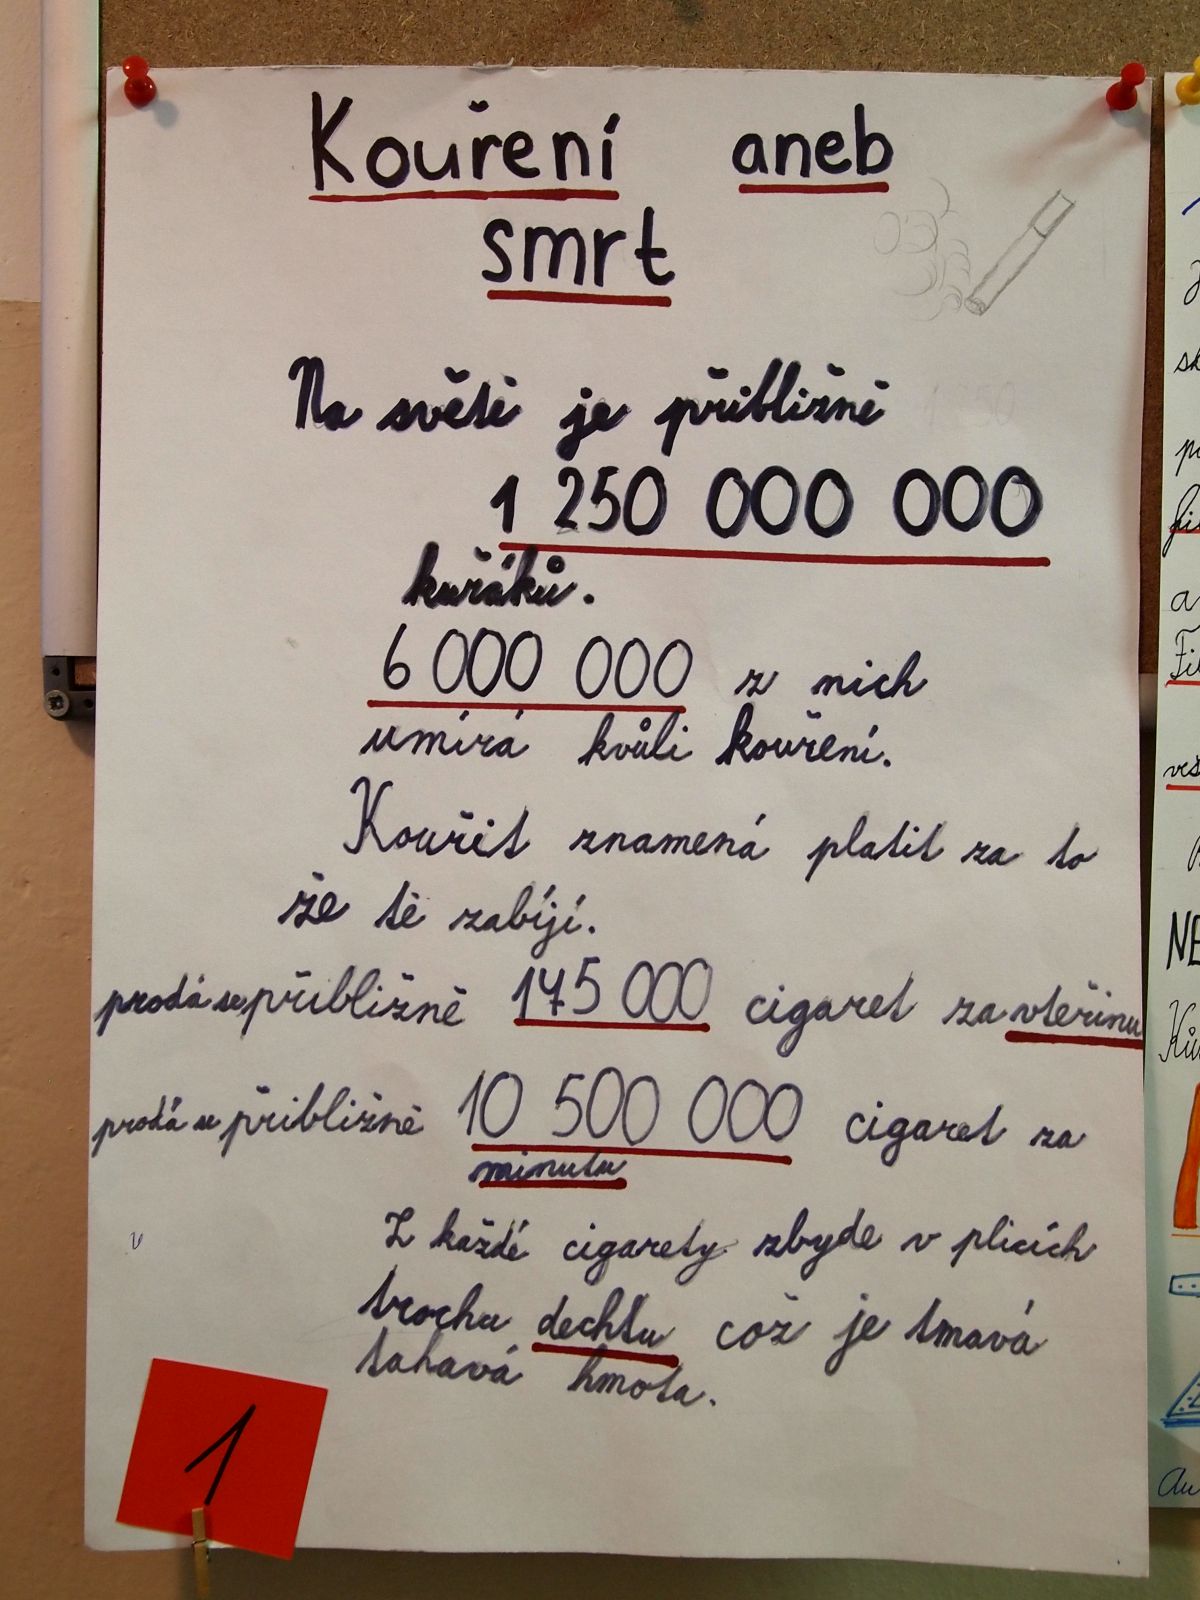 Kouření aneb
smrt
Na světě je přibližně
1 250 000 000
kuřáků.
6 000 000 z nich
umírá kvůli kouření.
Kouřit znamená platit za to
že tě zabíjí.
prodá se přibližně 175 000 cigaret za vteřinu
prodá se přibližně 10 500 000 cigaret za
minutu
Z každé cigarety zbyde v plicích
trochu dechtu což je tmavá
tahavá hmota.
v
1
NE